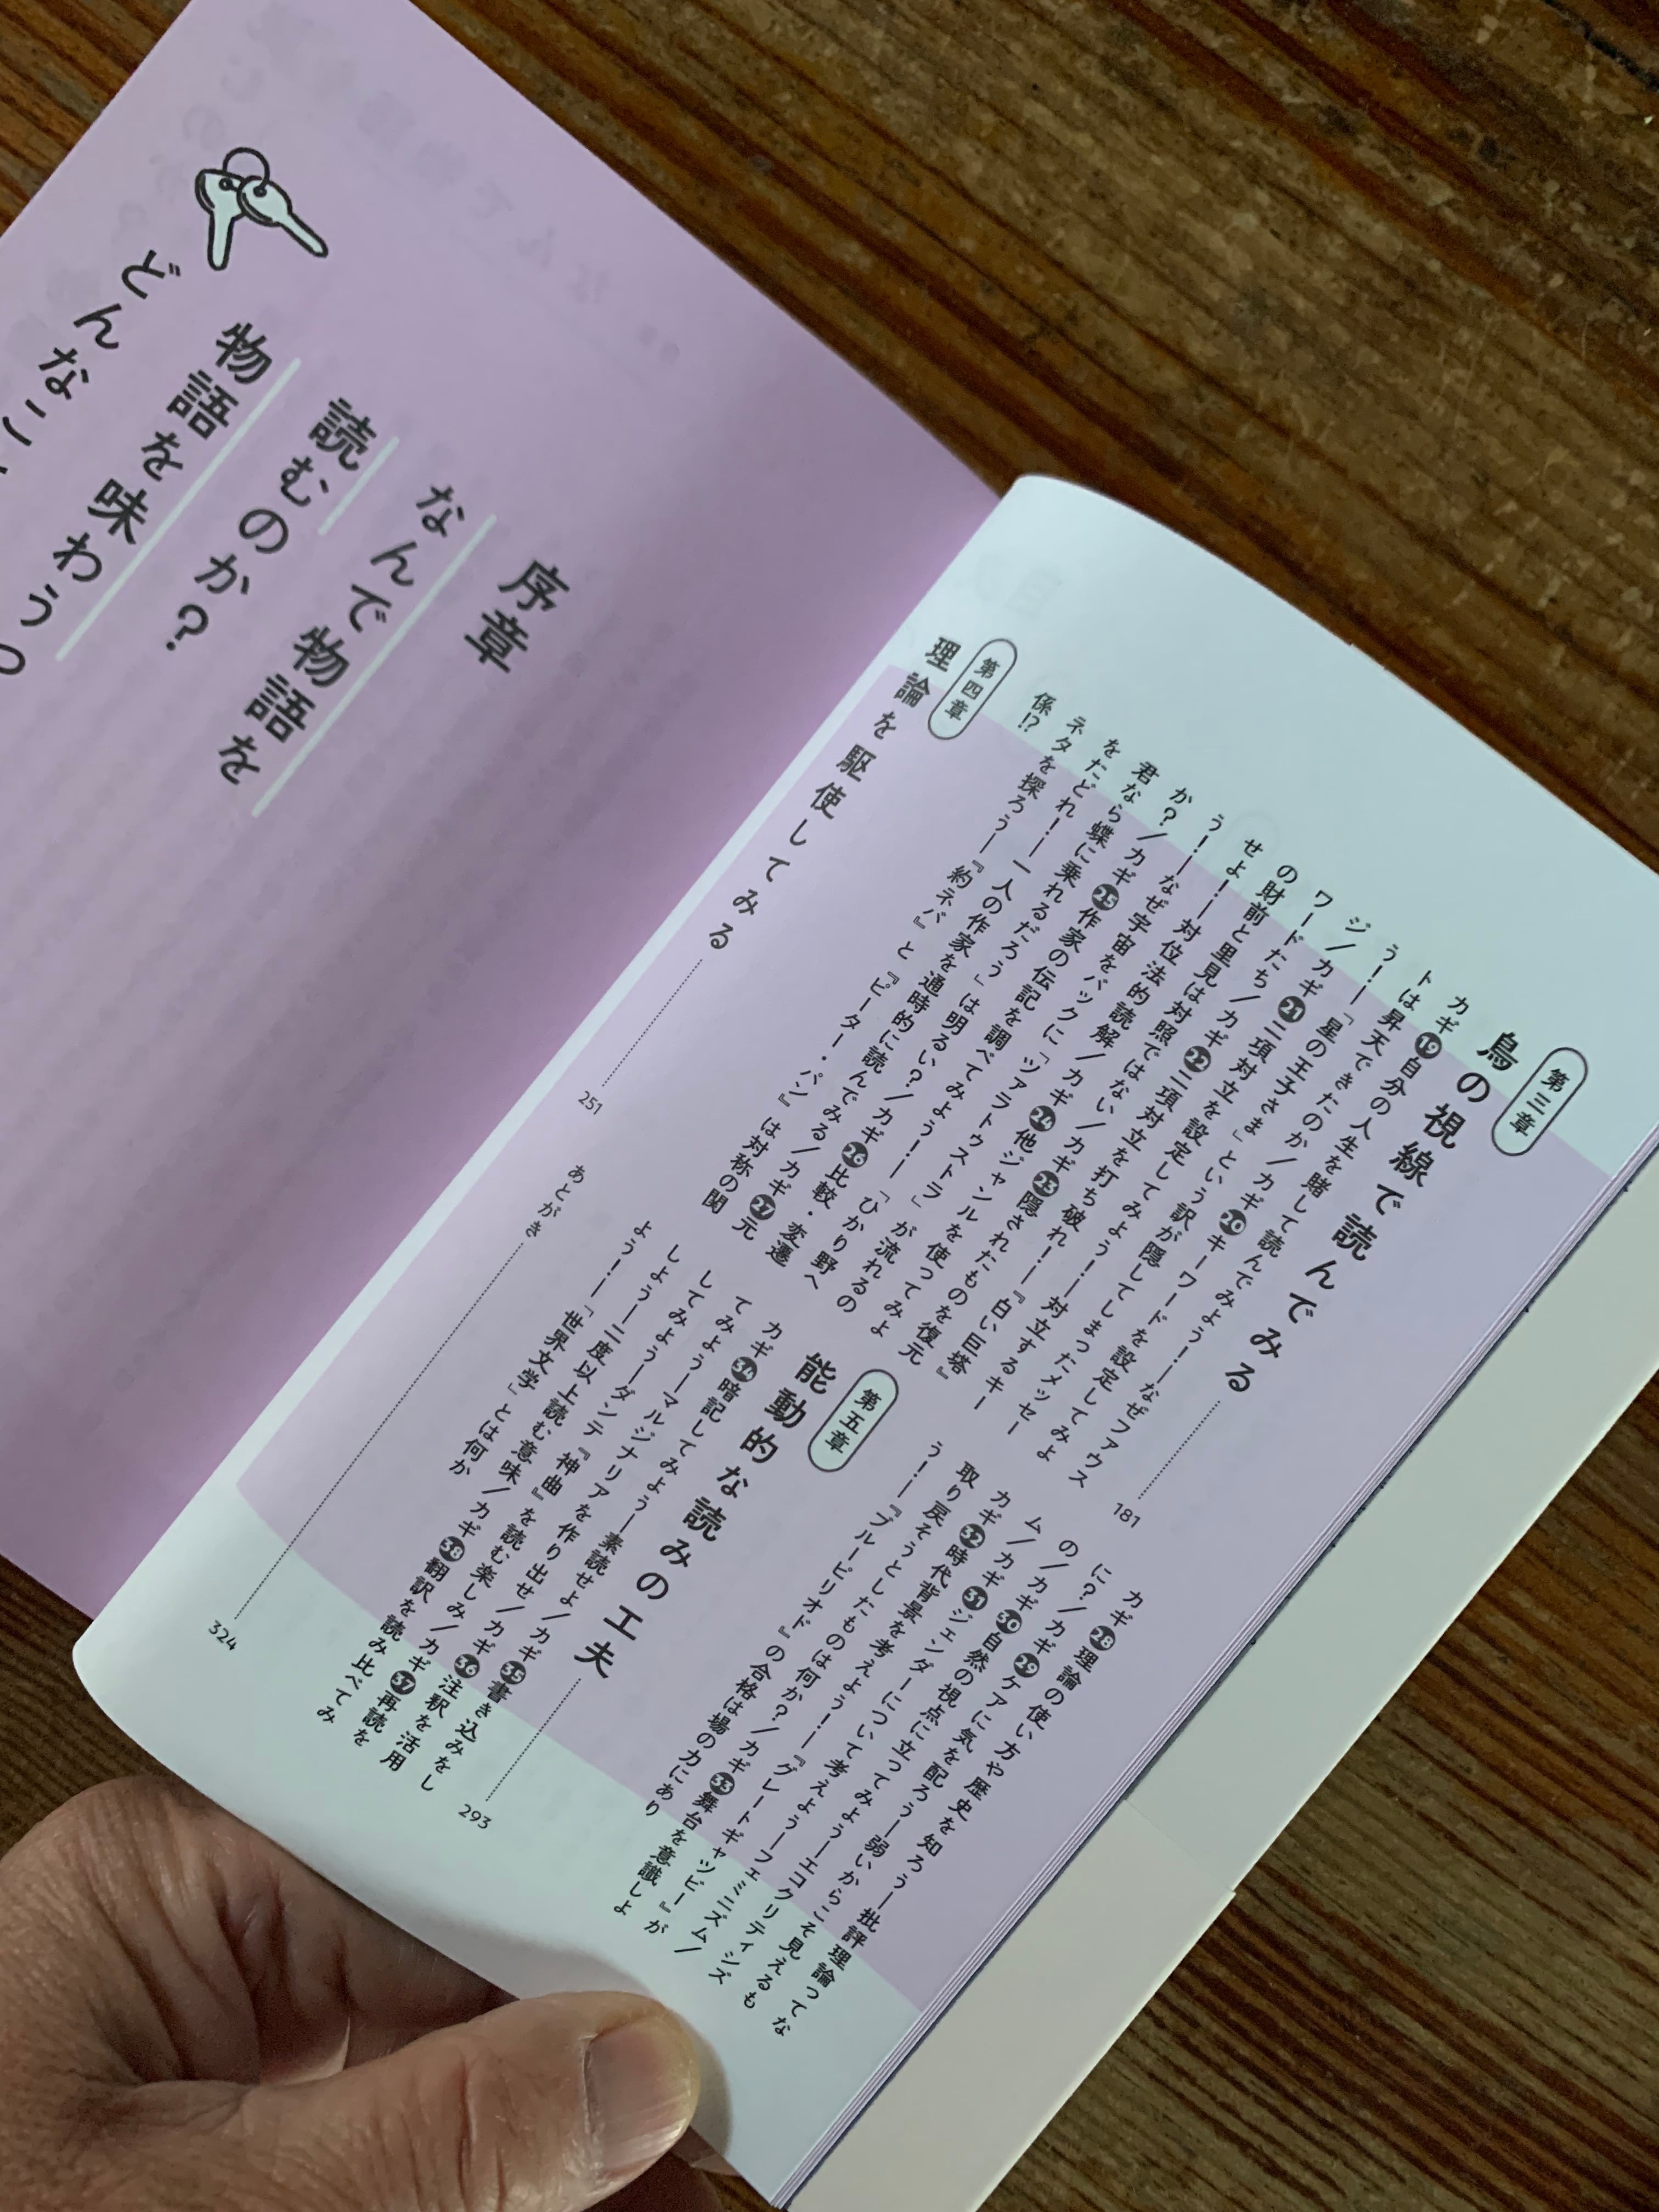 第三章
鳥の視線で読んでみる……181
カギ⑲自分の人生を賭して読んでみよう!—なぜファウス
トは昇天できたのか/カギ⑳キーワードを設定してみよ
う!—「星の王子さま」という訳が隠してしまったメッセー
ジ/カギ㉑二項対立を設定してみよう!—対立するキー
ワードたち/カギ㉒二項対立を打ち破れ!—『白い巨塔』
の財前と里見は対照ではない/カギ㉓隠されたものを復元
せよ!—対位法的読解/カギ㉔他ジャンルを使ってみよ
う!—なぜ宇宙をバックに「ツァラトゥストラ」が流れるの
か?/カギ㉕作家の伝記を調べてみよう!—「ひかり野へ
君なら蝶に乗れるだろう」は明るい?/カギ㉖比較・変遷
をたどれ!—一人の作家を通時的に読んでみる/カギ㉗元
ネタを探ろう—『約ネバ』と『ピーター・パン』は対称の関
係!?
第四章
理論を駆使してみる……251
カギ㉘理論の使い方や歴史を知ろう—批評理論ってな
に?/カギ㉙ケアに気を配ろう—弱いからこそ見えるも
の/カギ㉚自然の視点に立ってみよう—エコクリティシズ
ム/カギ㉛ジェンダーについて考えよう—フェミニズム/
カギ㉜時代背景を考えよう!—『グレートギャツビー』が
取り戻そうとしたものは何か?/カギ㉝舞台を意識しよ
う!—『ブルーピリオド』の合格は場の力にあり
第五章
能動的な読みの工夫……293
カギ㉞暗記してみよう—素読せよ/カギ㉟書き込みをし
てみよう—マルジナリアを作り出せ/カギ㊱注釈を活用
してみよう—ダンテ『神曲』を読む楽しみ/カギ㊲再読を
しよう—二度以上読む意味/カギ㊳翻訳を読み比べてみ
よう!—「世界文学」とは何か
あとがき……324
序章
なんで物語を
読むのか?
物語を味わうっ
どんなこ